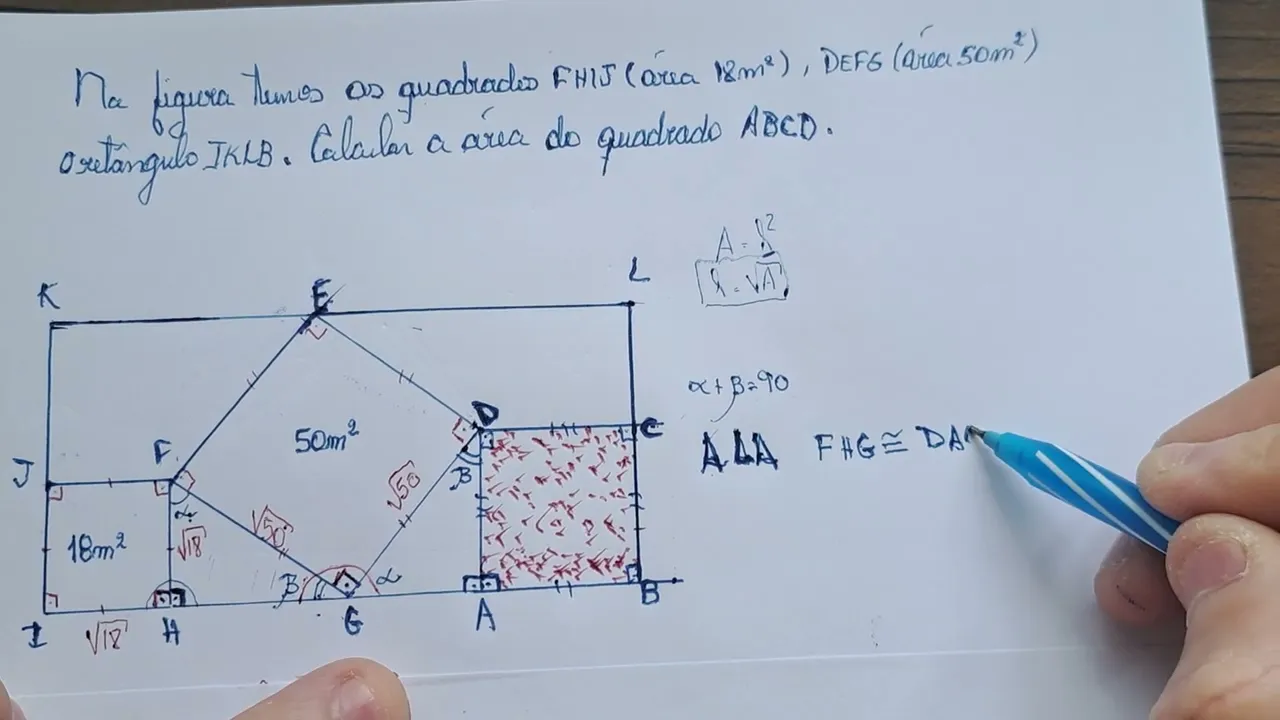 Na figura temos os quadrados FHIJ (área 18m²), DEFG (área 50m²)
o retângulo IKLB. Calcular a área do quadrado ABCD.
A = l²
l = √A
K E L
α + β = 90
ALA FHG ≅ DA
D C
F
50m²
J
β
α √50 √50
18m² √18
β α
I √18 H G A B